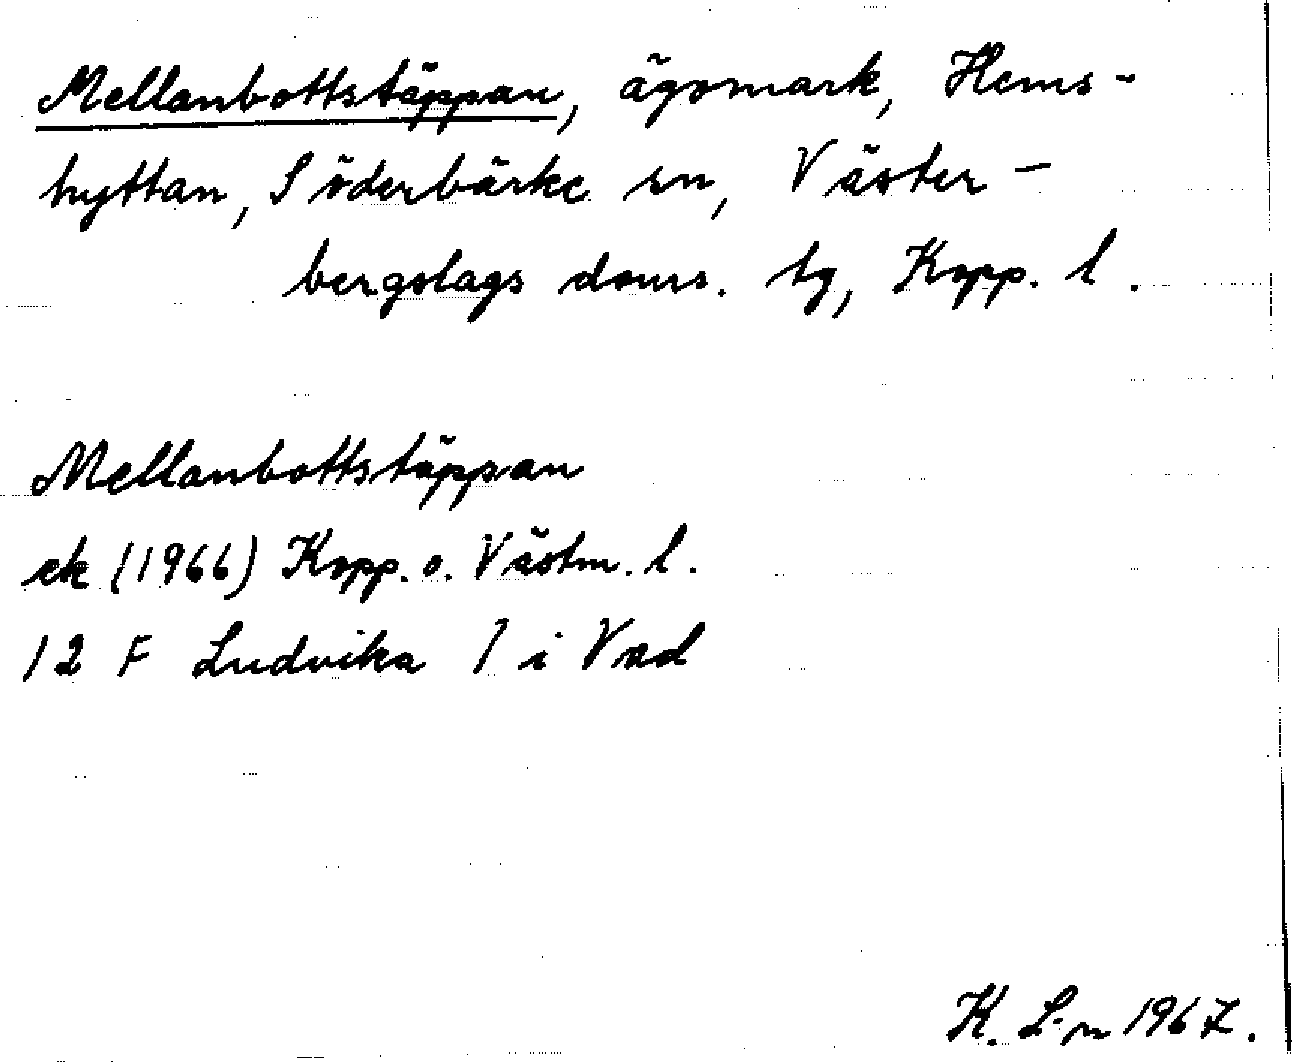 Mellanbottstäppan, ägomark, Hems-
hyttan, Söderbärke sn, Väster-
bergslags doms. tg, Kopp. l.
Mellanbottstäppan
ek (1966) Kopp. o. Västm. l.
12 F Ludvika 7 i Vad
K. L-n 1967.